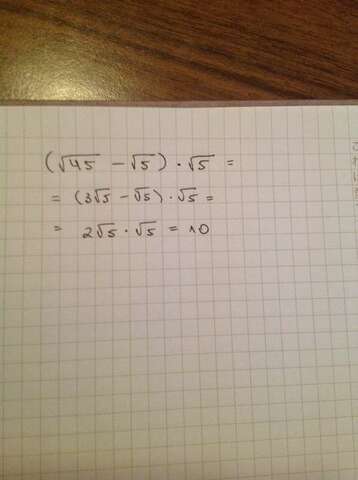 (√45 - √5) · √5 =
= (3√5 - √5) · √5 =
= 2√5 · √5 = 10